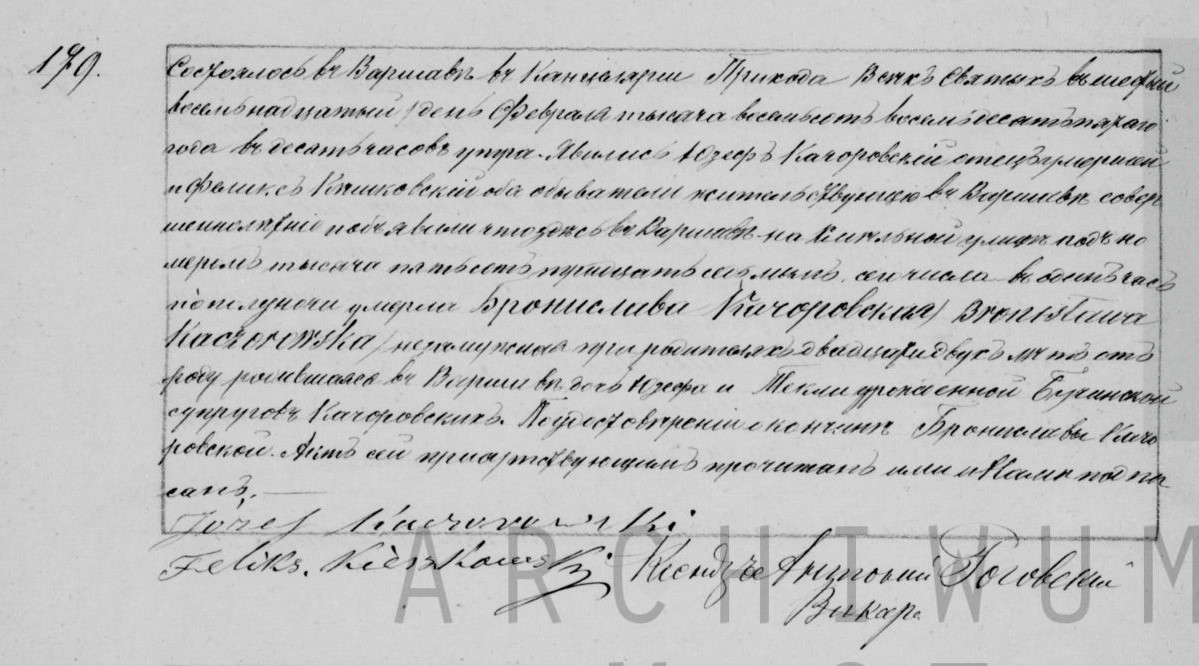 179.
Состоялось въ Варшавѣ въ Канцеляріи Прихода Всѣхъ Святыхъ въ шестый
восемьнадцатый/день Февраля тысяча восемьсотъ восемьдесятъ
года въ десять часовъ утра. Явились Юзефъ Качоровскій отецъ умершей
и Феликсъ Кѣшковскій оба обыватели жительствующіе въ Варшавѣ совер
шеннолѣтніе и объявили что здѣсь въ Варшавѣ на улицѣ подъ но
меромъ тысяча пятьсотъ тридцать седьмымъ сего числа въ часъ
по полуночи умерла Бронислава Качоровская/Bronisława
Kaczorowska/незамужная при родителяхъ двадцати двухъ лѣтъ отъ
роду родившаяся въ Варшавѣ дочь Юзефа и Текли урожденной
супруговъ Качоровскихъ. По удостовѣреніи о кончинѣ Брониславы Качо
ровской. Актъ сей присутствующимъ прочитанъ ими и Нами подпи
санъ.
Józef Kaczorowski
Feliks Kieszkowski Ксендзъ Антоній
Викар.
ARCHIWUM